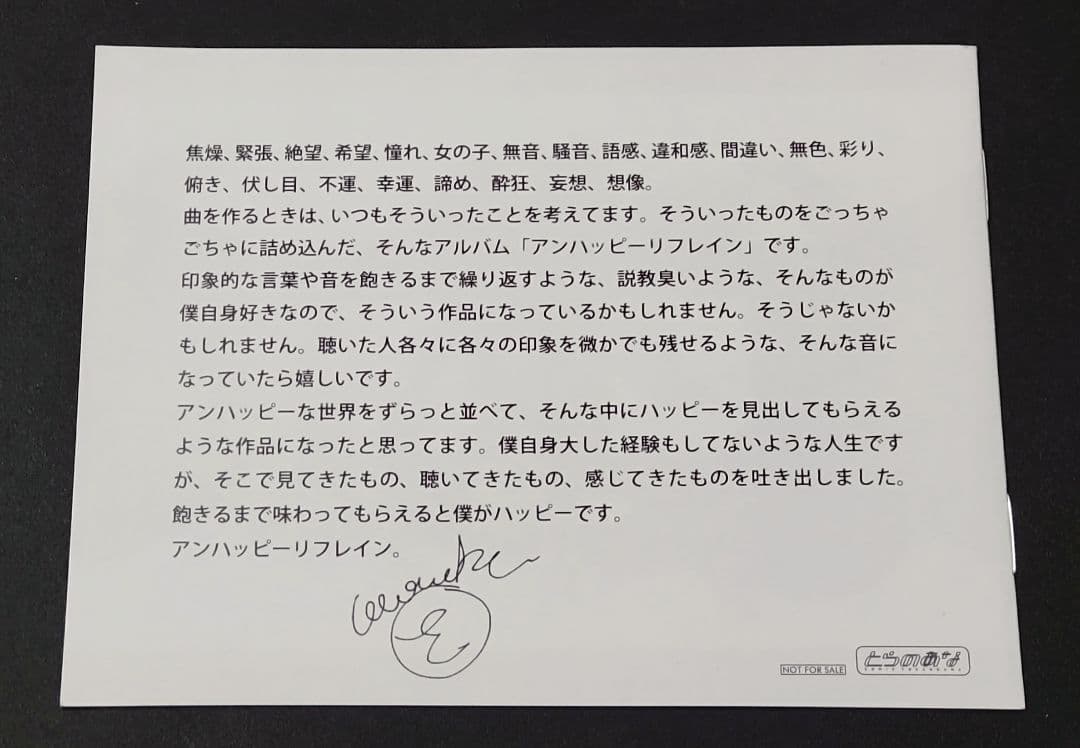 焦燥、緊張、絶望、希望、憧れ、女の子、無音、騒音、語感、違和感、間違い、無色、彩り、
俯き、伏し目、不運、幸運、諦め、酔狂、妄想、想像。
曲を作るときは、いつもそういったことを考えてます。そういったものをごっちゃ
ごちゃに詰め込んだ、そんなアルバム「アンハッピーリフレイン」です。
印象的な言葉や音を飽きるまで繰り返すような、説教臭いような、そんなものが
僕自身好きなので、そういう作品になっているかもしれません。そうじゃないか
もしれません。聴いた人各々に各々の印象を微かでも残せるような、そんな音に
なっていたら嬉しいです。
アンハッピーな世界をずらっと並べて、そんな中にハッピーを見出してもらえる
ような作品になったと思ってます。僕自身大した経験もしてないような人生です
が、そこで見てきたもの、聴いてきたもの、感じてきたものを吐き出しました。
飽きるまで味わってもらえると僕がハッピーです。
アンハッピーリフレイン。
NOT FOR SALE
とらのあな